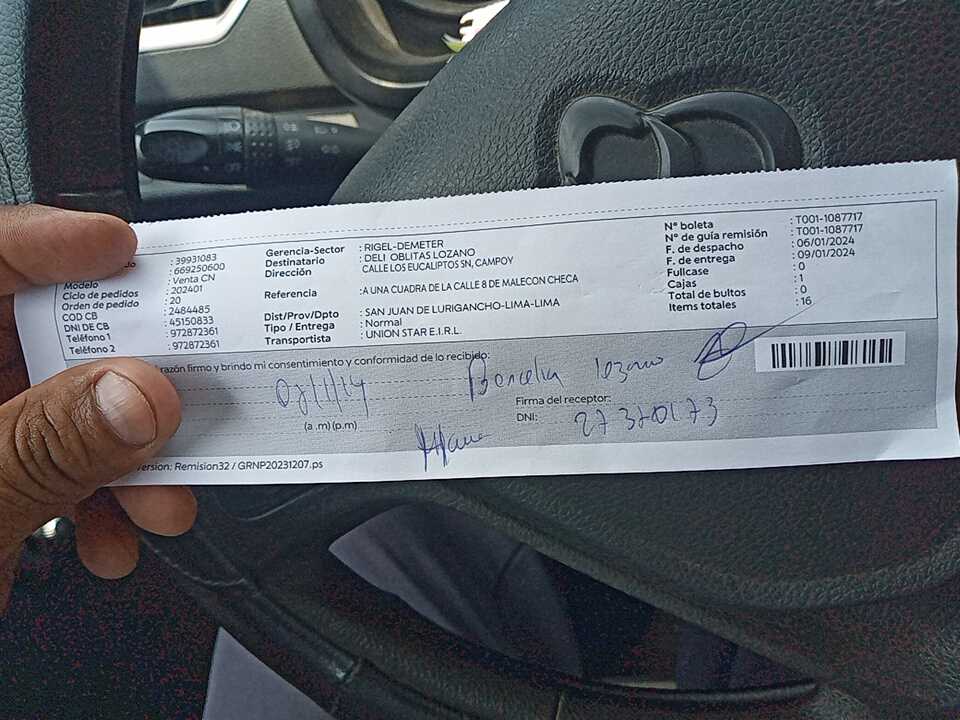 : 39931083
: 669250600
Modelo : Venta CN
Ciclo de pedidos : 202401
Orden de pedido : 20
COD CB : 2484485
DNI DE CB : 45150833
Teléfono 1 : 972872361
Teléfono 2 : 972872361
Gerencia-Sector : RIGEL-DEMETER
Destinatario : DELI OBLITAS LOZANO
Dirección CALLE LOS EUCALIPTOS SN, CAMPOY
Referencia : A UNA CUADRA DE LA CALLE 8 DE MALECON CHECA
Dist/Prov/Dpto : SAN JUAN DE LURIGANCHO-LIMA-LIMA
Tipo / Entrega : Normal
Transportista : UNION STAR E.I.R.L.
N° boleta : T001-1087717
N° de guía remisión : T001-1087717
F. de despacho : 06/01/2024
F. de entrega : 09/01/2024
Fullcase : 0
Cajas : 1
Total de bultos : 0
Items totales : 16
razón firmo y brindo mi consentimiento y conformidad de lo recibido:
Lozano
(a .m) (p.m)
Firma del receptor:
DNI:
Version: Remision32 / GRNP20231207.ps